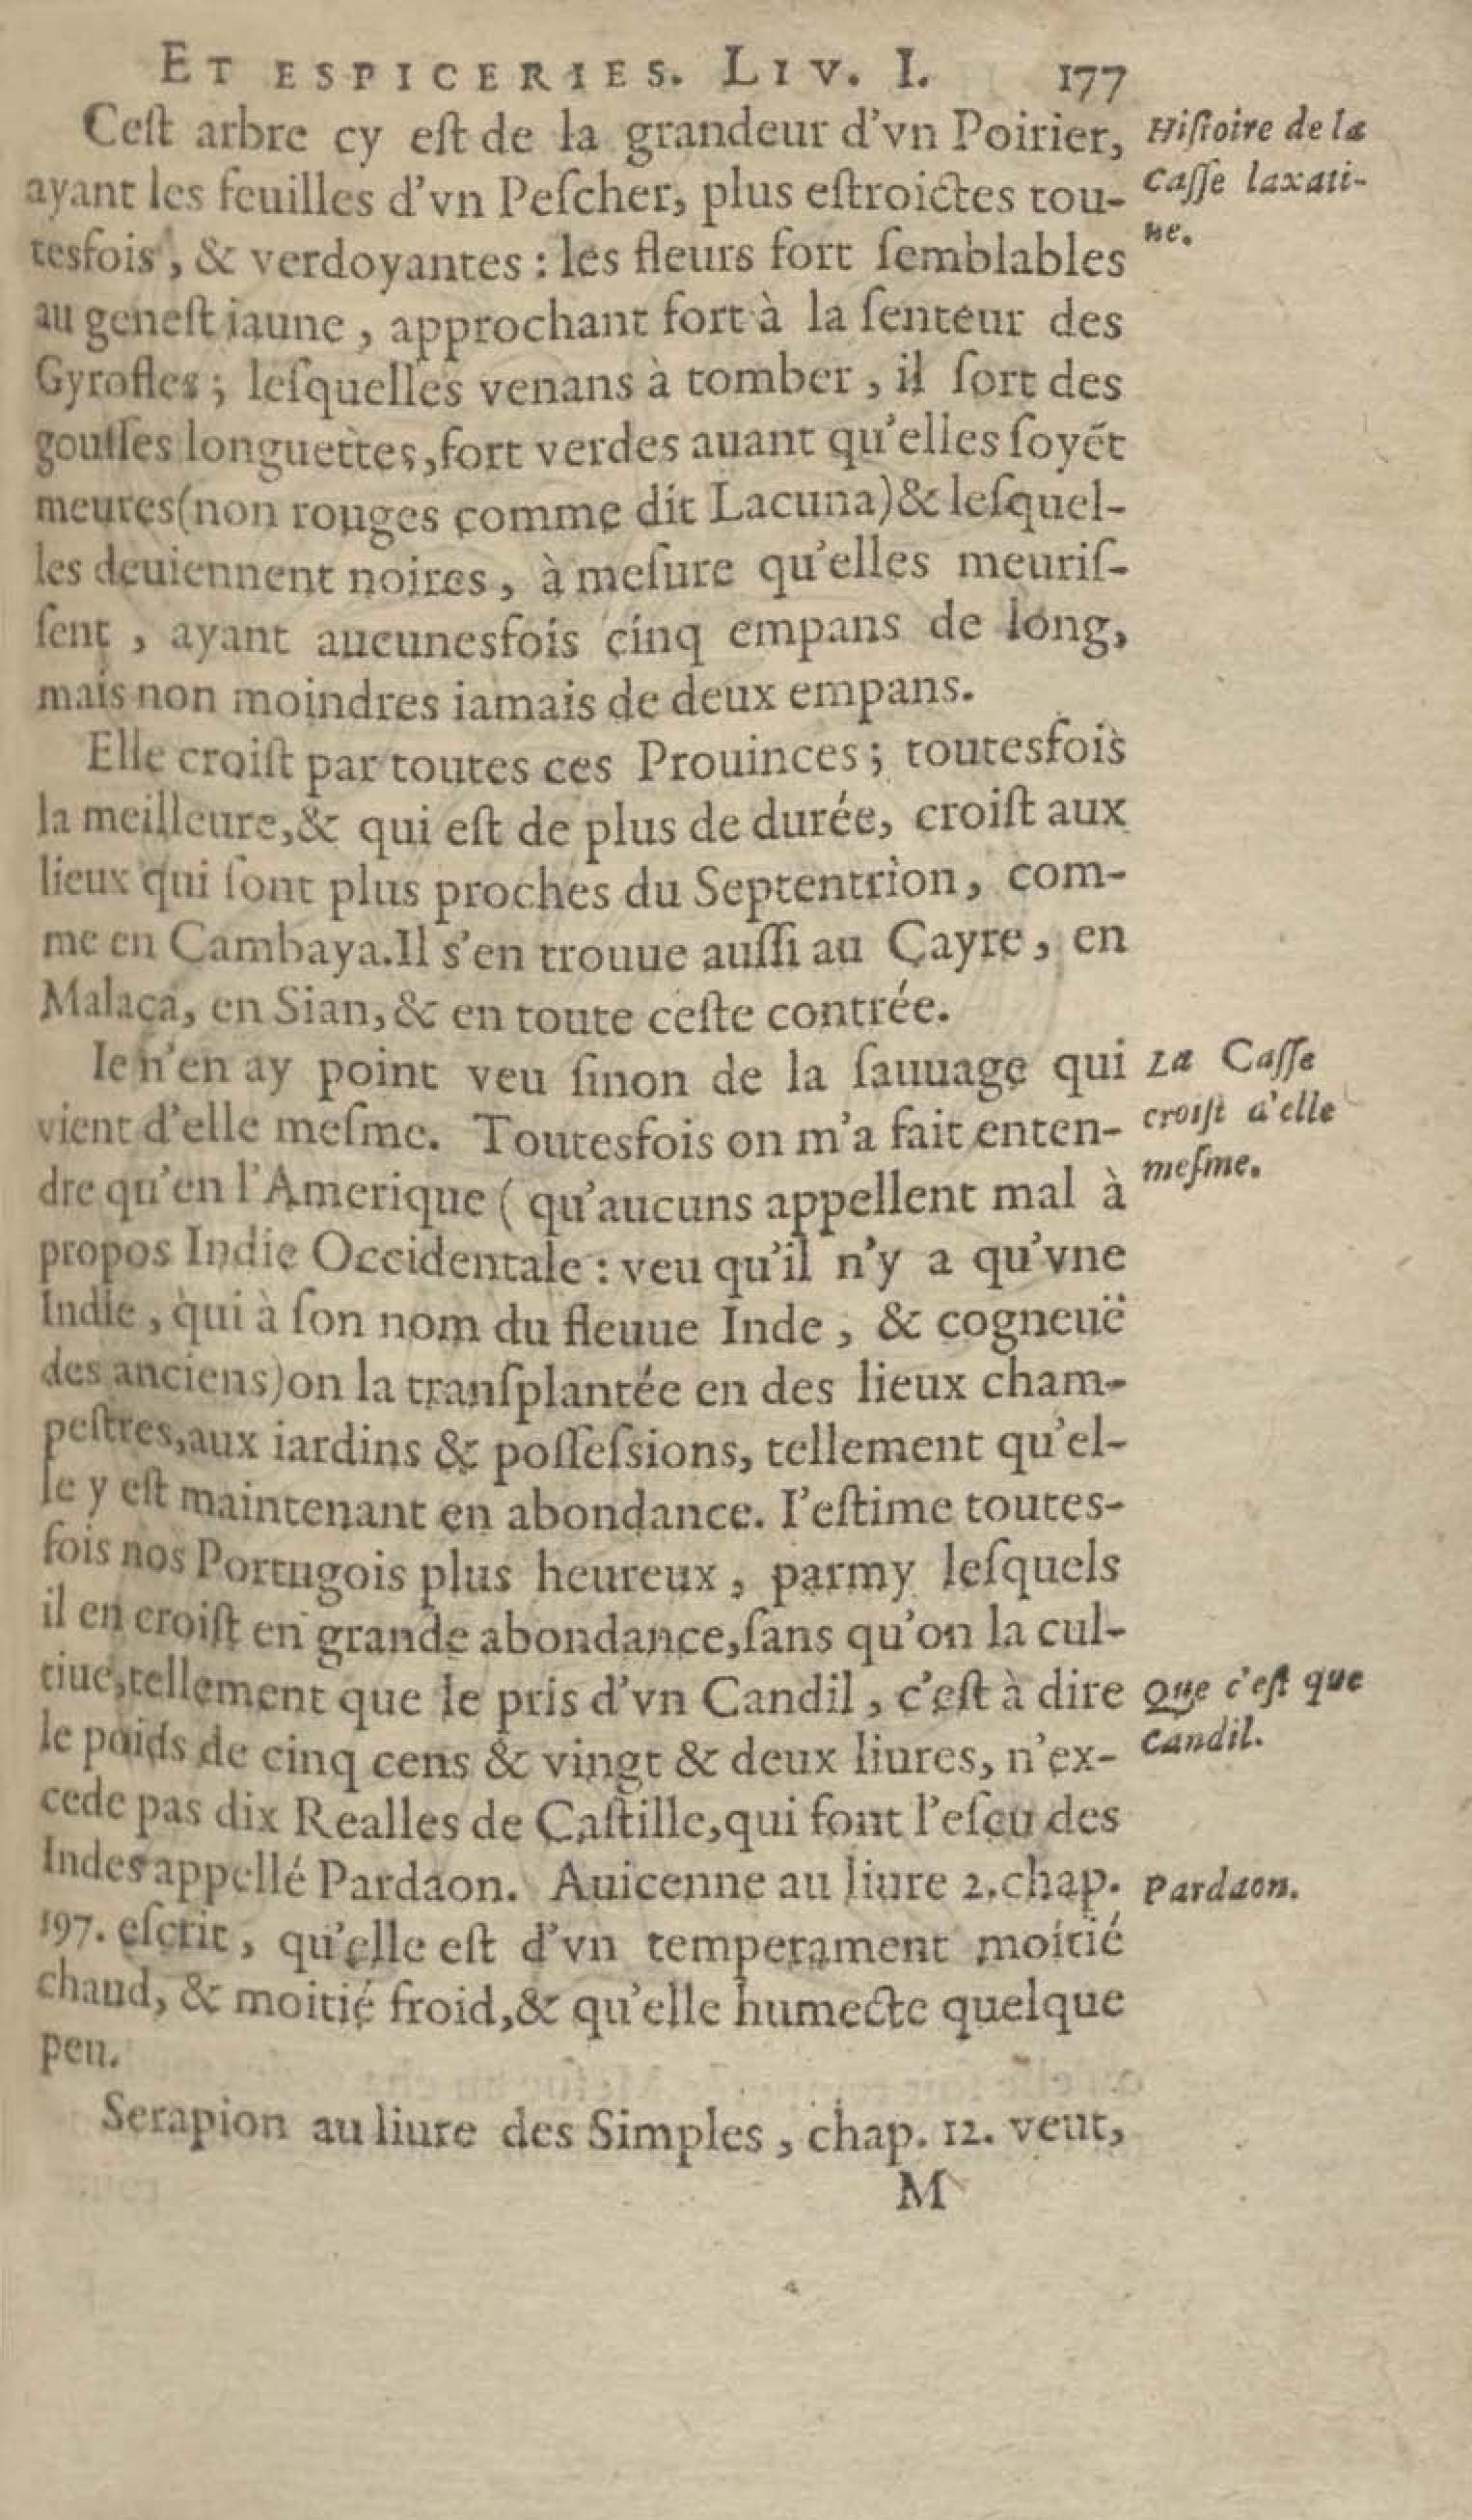 ET ESPICERIES. LIV. I. 177
Ceſt arbre cy eſt de la grandeur d'vn Poirier,
ayant les feuilles d'vn Peſcher, plus eſtroictes tou-
tesfois, & verdoyantes : les fleurs fort ſemblables
au geneſt iaune, approchant fort à la ſenteur des
Gyrofles; leſquelles venans à tomber, il ſort des
gouſſes longuettes, fort verdes auant qu'elles ſoyẽt
meures (non rouges comme dit Lacuna) & leſquel-
les deuiennent noires, à meſure qu'elles meuriſ-
ſent, ayant aucunesfois cinq empans de long,
mais non moindres iamais de deux empans.
Elle croiſt par toutes ces Prouinces; toutesfois
la meilleure, & qui eſt de plus de durée, croiſt aux
lieux qui ſont plus proches du Septentrion, com-
me en Cambaya. Il s'en trouue auſſi au Cayre, en
Malaca, en Sian, & en toute ceſte contrée.
Ie n'en ay point veu ſinon de la ſauuage qui
vient d'elle meſme. Toutesfois on m'a fait enten-
dre qu'en l'Amerique ( qu'aucuns appellent mal à
propos Indie Occidentale : veu qu'il n'y a qu'vne
Indie, qui à ſon nom du fleuue Inde, & cogneuë
des anciens) on la tranſplantée en des lieux cham-
peſtres, aux iardins & poſſeſsions, tellement qu'el-
le y eſt maintenant en abondance. I'eſtime toutes-
fois nos Portugois plus heureux, parmy leſquels
il en croiſt en grande abondance, ſans qu'on la cul-
tiue, tellement que le pris d'vn Candil, c'eſt à dire
le poids de cinq cens & vingt & deux liures, n'ex-
cede pas dix Realles de Caſtille, qui font l'eſcu des
Indes appellé Pardaon. Auicenne au liure 2. chap.
197. eſcrit, qu'elle eſt d'vn temperament moitié
chaud, & moitié froid, & qu'elle humecte quelque
peu.
Serapion au liure des Simples, chap. 12. veut,
M
Hiſtoire de la
Caſſe laxati-
ue.
La Caſſe
croiſt d'elle
meſme.
Que c'eſt que
Candil.
Pardaon.